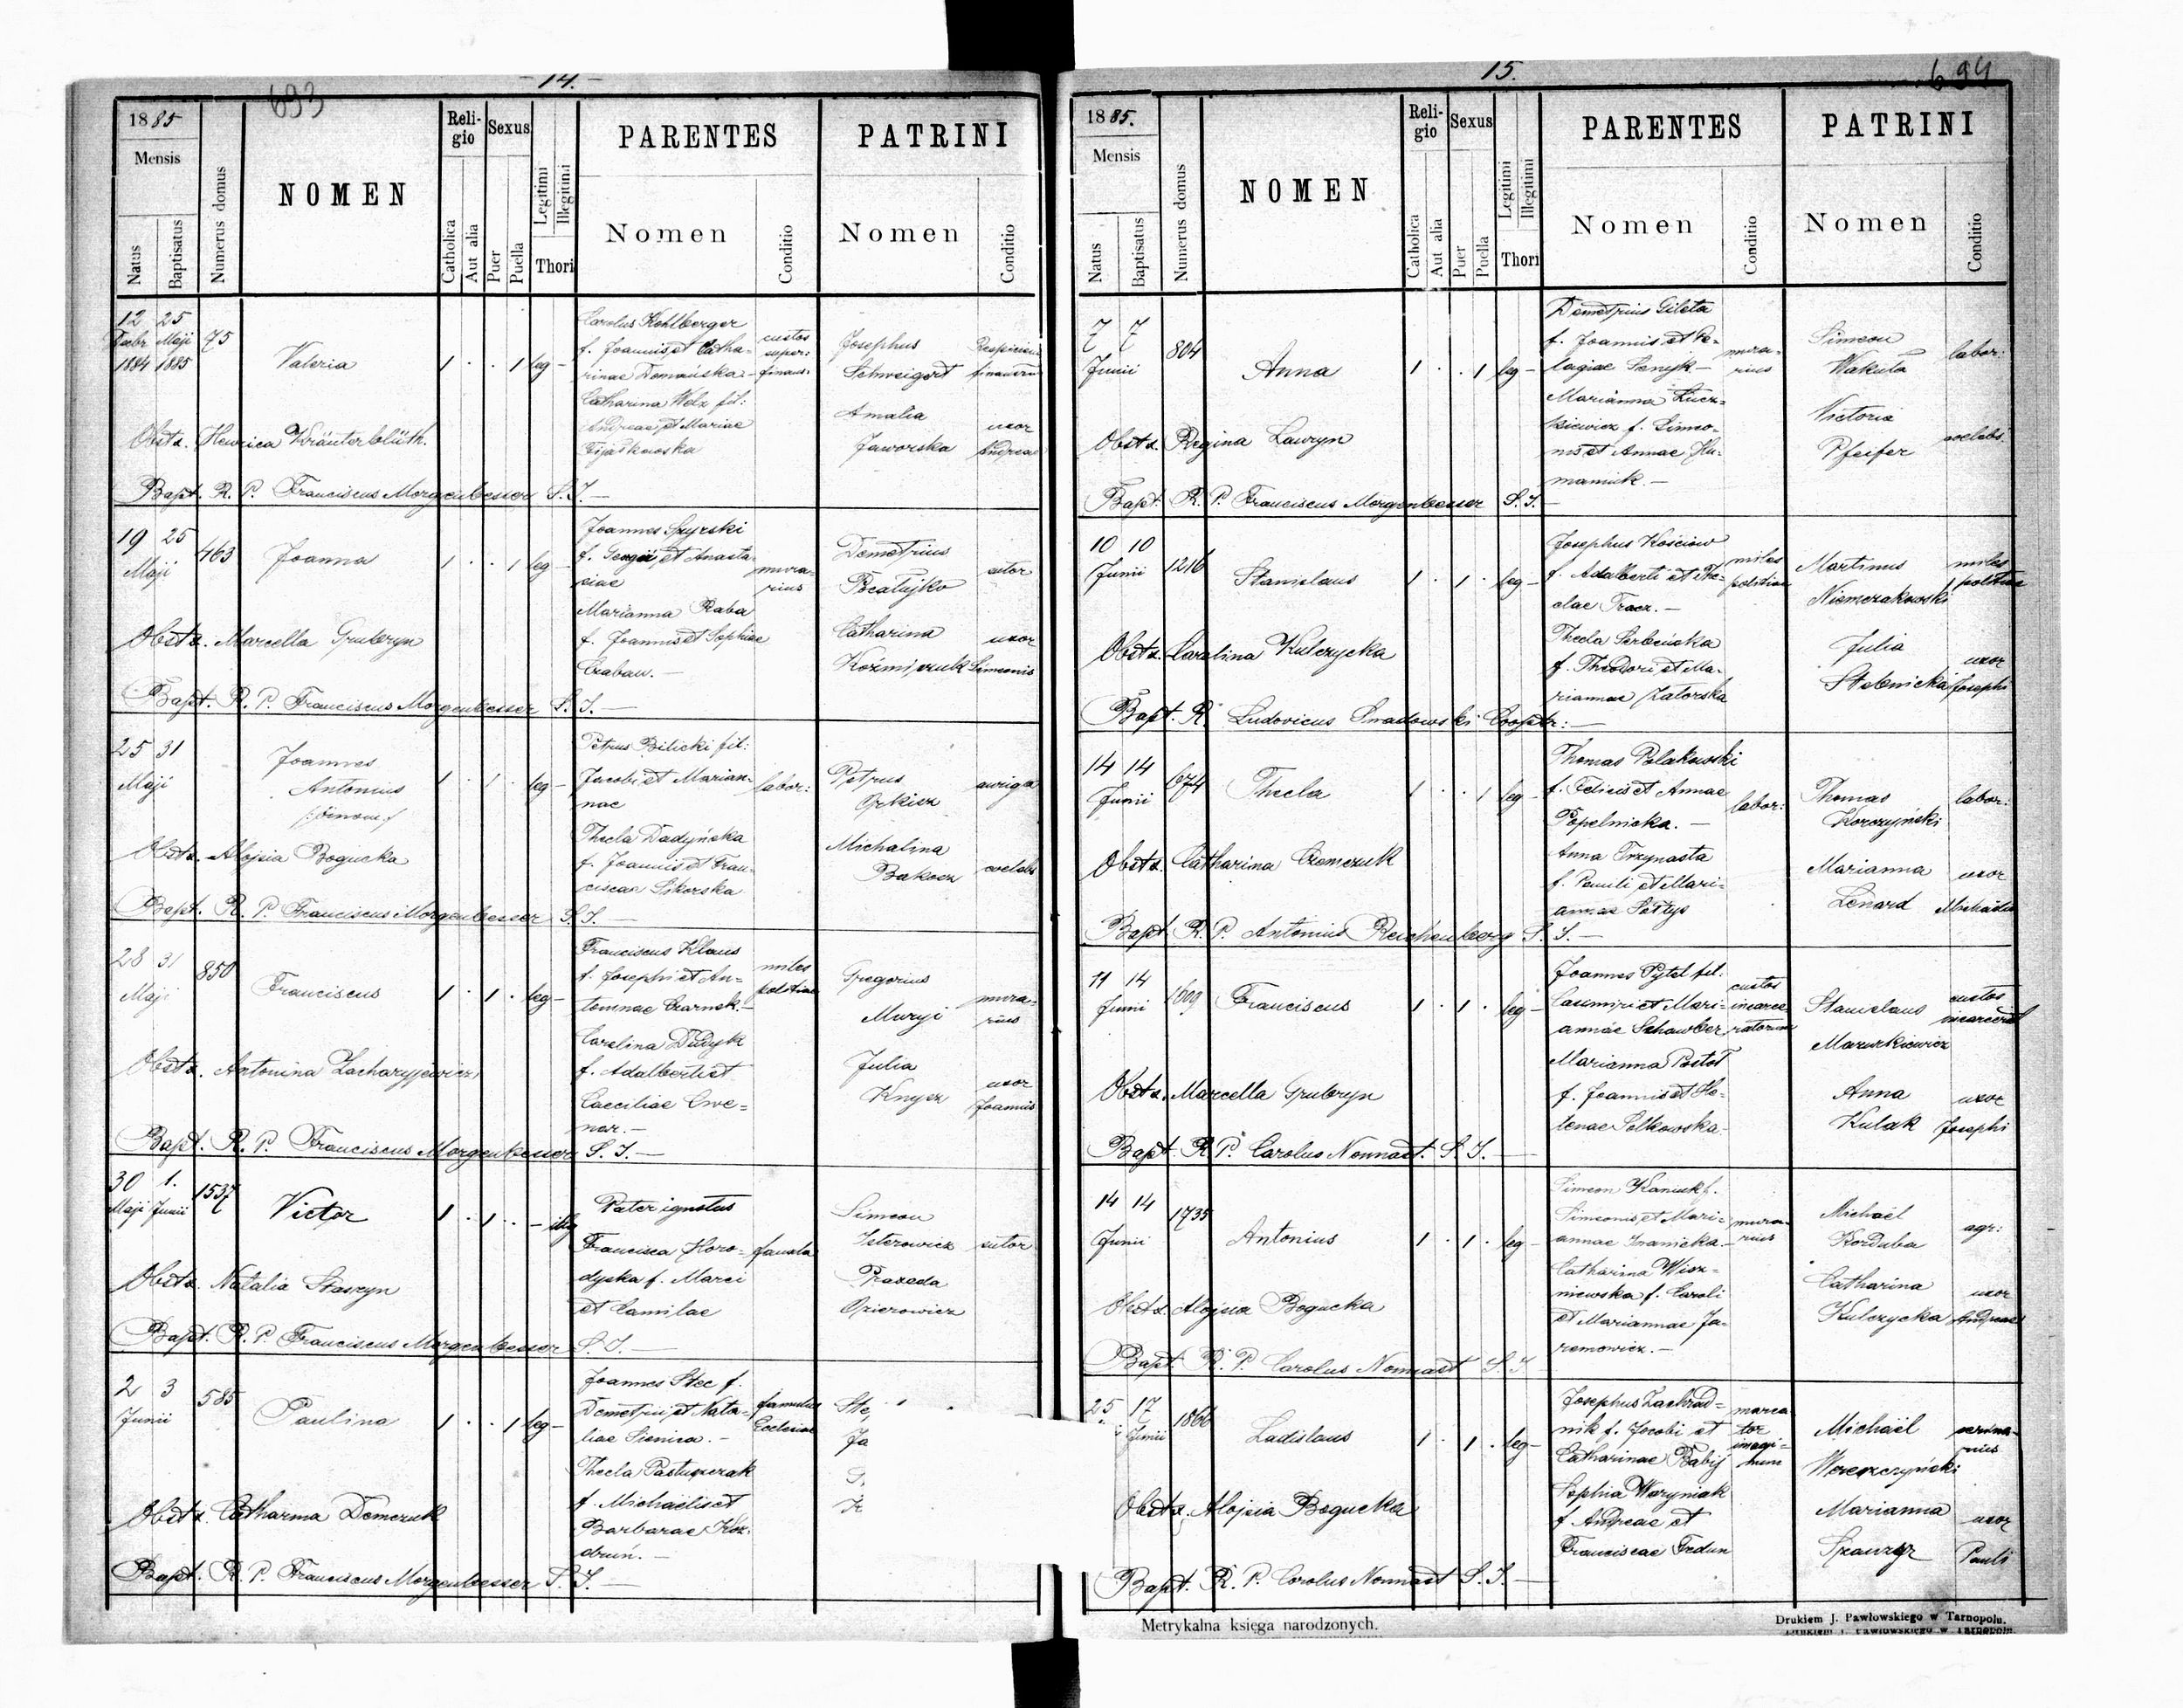 14.
693
1885
Mensis
Natus
Baptisatus
Numerus domus
NOMEN
Reli-
gio
Catholica
Aut alia
Sexus
Puer
Puella
Legitimi
Illegitimi
Thori
PARENTES
Nomen
Conditio
PATRINI
Nomen
Conditio
12 25
Febr. Maji
1884 1885
75
Valeria
1 . . 1 leg -
Carolus Kohlberger
f. Joannis et Catha-
rinae Domańska -
Catharina Welz fil:
Andreae et Mariae
custos
finans:
Josephus
Schweigert
Amalia
Jaworska
uxor
Andreae
Obstx. Henrica Kräuterblüth.
Bapt. R. P. Franciscus Morgenbesser S. J. -
19 25
Maji
463
Joanna
1 . . 1 leg -
Joannes Spyrski
f. Sergii et Anasta
siae
Marianna Raba
f. Joannis et Sophiae
Czaban. -
mura-
rius
Demetrius
sutor
Catharina
uxor
Simeonis
Obstx. Marcella Grubryn
Bapt. R. P. Franciscus Morgenbesser S. J. -
25 31
Maji
Joannes
Antonius
/:binom:/
1 . 1 . leg -
Petrus Bilicki fil:
Jacobi et Marian-
nae
Thecla Dadyńska
f. Joannis et Fran-
ciscae Sikorska
labor:
Petrus
Orkisz
auriga
Michalina
Bakosz
coelebs
Obstx. Alojsia Bogucka
Bapt. R. P. Franciscus Morgenbesser S. J. -
28 31
Maji
850
Franciscus
1 . 1 . leg -
Franciscus Klaus
f. Josephi et An-
toninae Czarnek. -
Carolina Dudyk
f. Adalberti et
Caeciliae Cwe=
nar. -
miles
politiae
Gregorius
Muryi
mura-
rius
Julia
Knysz
uxor
Joannis
Obstx. Antonina Zacharyjewicz
Bapt. R. P. Franciscus Morgenbesser S. J. -
30 1.
Maji Junii
1537
Victor
1 . 1 . - illeg
Pater ignotus
Francisca Horo-
dyska f. Marci
et Camilae
famula
Simeon
Isterowicz
sutor
Praxeda
Ozierowicz
Obstx. Natalia Staszyn
Bapt. R. P. Franciscus Morgenbesser S. J. -
2 3
Junii
585
Paulina
1 . . 1 leg -
Joannes Stec f.
Demetrii et Nata-
liae Sienica. -
Thecla Pastuszczak
f. Michaëlis et
Barbarae Koz-
druń. -
famulus
Ecclesiae
Ste
Ja
Obstx. Catharina Demczuk
Bapt. R. P. Franciscus Morgenbesser S. J. -
15.
694
1885.
Mensis
Natus
Baptisatus
Numerus domus
NOMEN
Reli-
gio
Catholica
Aut alia
Sexus
Puer
Puella
Legitimi
Illegitimi
Thori
PARENTES
Nomen
Conditio
PATRINI
Nomen
Conditio
7 7
Junii
804
Anna
1 . . 1 leg -
Demetrius Gileta
f. Joannis et Pe-
lagiae Senyk -
Marianna Łucz-
kiewicz f. Simeo-
nis et Annae Hu-
maniuk. -
mura-
rius
Simeon
Wakuła
labor:
Victoria
Pfeifer
coelebs
Obstx. Regina Lauryn
Bapt. R. P. Franciscus Morgenbesser S. J. -
10 10
Junii
1216
Stanislaus
1 . 1 . leg -
Josephus Kościów
f. Adalberti et The-
clae Tracz. -
Thecla Serbeńska
f. Theodori et Ma-
riannae Zatorska
miles
politiae
Martinus
Niemczakowski
miles
politiae
Julia
Stebnicka
uxor
Josephi
Obstx. Carolina Kulczycka
Bapt. R. Ludovicus Smadowski Cooptr: -
14 14
Junii
674
Thecla
1 . . 1 leg -
Thomas Polakowski
f. Felicis et Annae
Popelnicka. -
Anna Trzynasta
f. Pauli et Mari-
annae Sołtys
labor:
Thomas
Korczyński
labor:
Marianna
Lenard
uxor
Michaelis
Obstx. Catharina Czemczuk
Bapt. R. P. Antonius Reichenberg S. J. -
11 14
Junii
1609
Franciscus
1 . 1 . leg -
Joannes Pytel fil.
Casimiri et Mari-
annae Schawber
Marianna Postoł
f. Joannis et He-
lenae Sołkowska -
custos
incarce-
ratorum
Stanislaus
Mazurkiewicz
custos
incarcerat
Anna
Kulak
uxor
Josephi
Obstx. Marcella Grubryn
Bapt. R. P. Carolus Nonnast. S. J. -
14 14
Junii
1735
Antonius
1 . 1 . leg -
Simeon Kaniuk f.
Simeonis et Mari-
annae Iwanicka. -
Catharina Wisz-
niewska f. Caroli
et Mariannae Ja-
remowicz. -
mura-
rius
Michaël
Korduba
agr:
Catharina
Kulczycka
uxor
Andreae
Obstx. Alojsia Bogucka
Bapt. R. P. Carolus Nonnast S. J.
25 17
Junii
1866
Ladislaus
1 . 1 . leg -
Josephus Zachrad=
nik f. Jacobi et
Catharinae Babij
Sophia Waryniak
f. Andreae et
Franciscae Fedun
merca
tor
imagi-
num
Michaël
Wereszczyński
Marianna
Szauzgr
uxor
Pauli
Obstx. Alojsia Bogucka
Bapt. R. P. Carolus Nonnast S. J. -
Metrykalna księga narodzonych.
Drukiem J. Pawłowskiego w Tarnopolu.